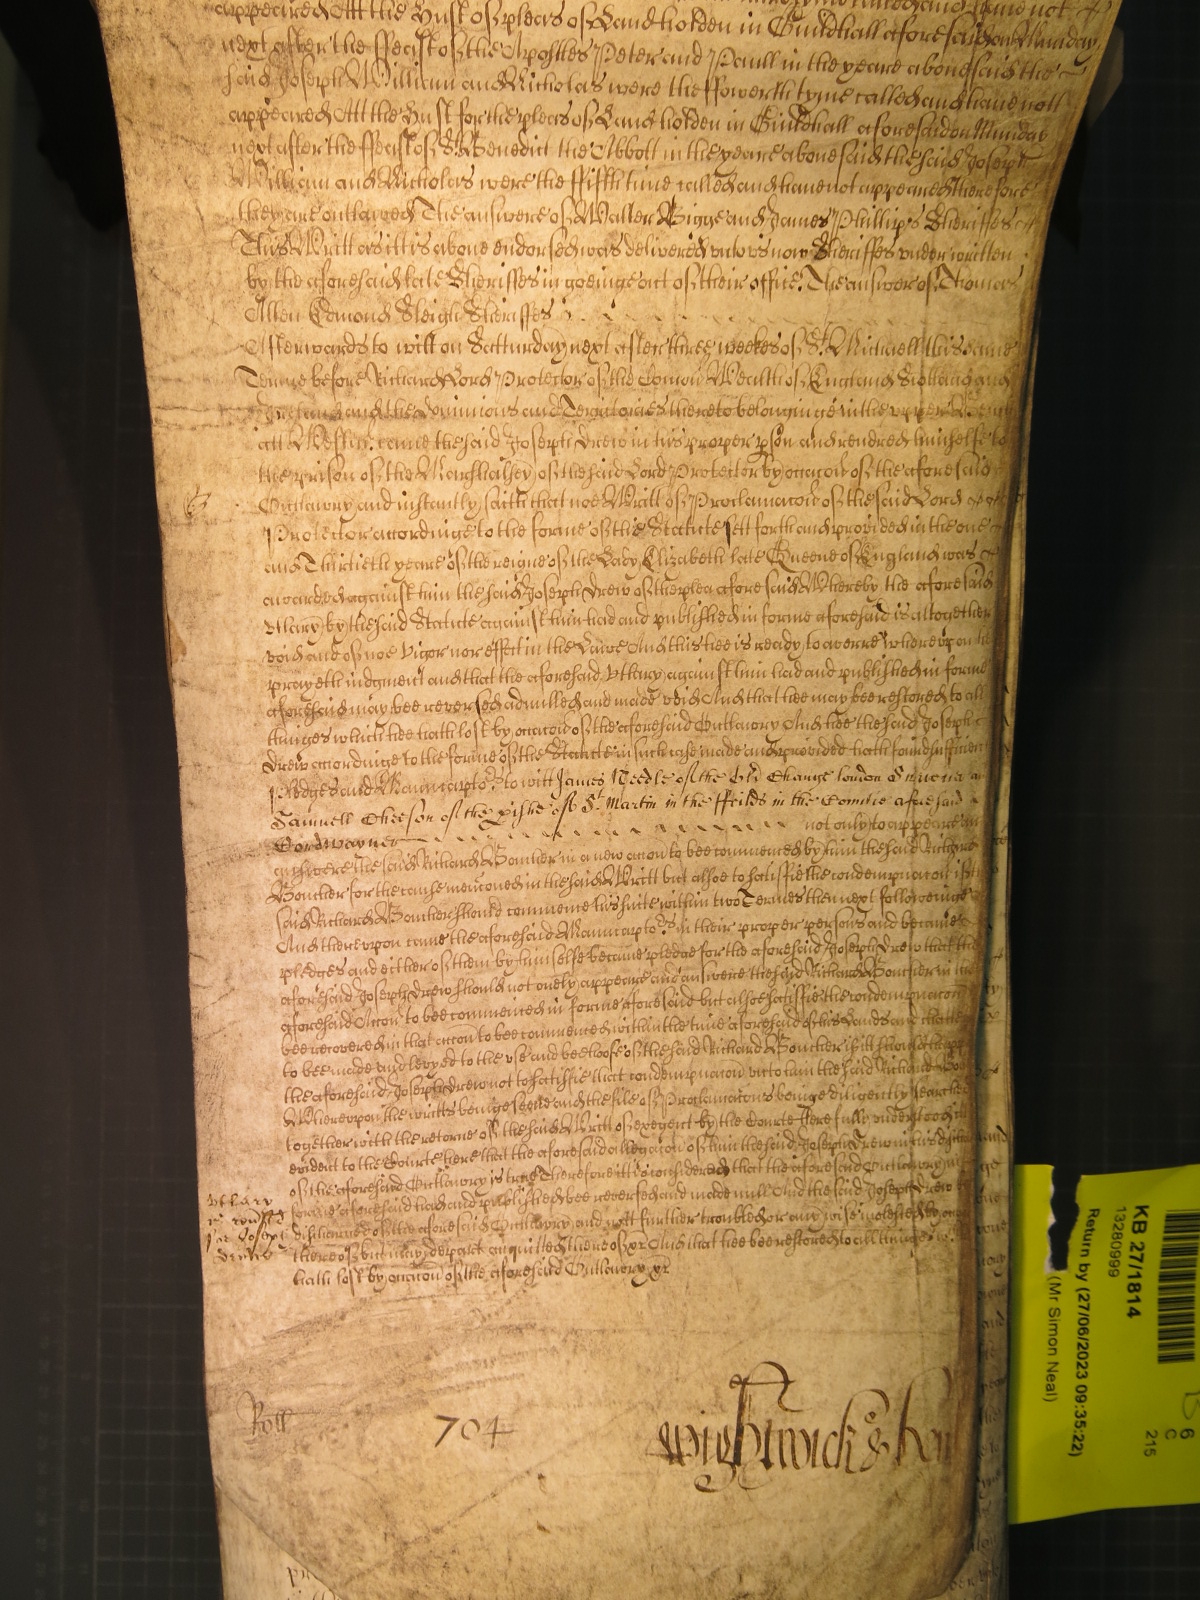 appeared Att the Hust of pleas of Land holden in Guildhall aforesaid on Munday
next after the ffeast of the Apostles Peter and Paull in the yeare abovesaid the
said Joseph William and Nicholas were the ffowerth tyme called and have not
appeared Att the Hust for the pleas of Land holden in Guildhall aforesaid on Munday
next after the ffeast of St Benedict the Abbott in the yeare abovesaid the said Joseph
William and Nicholas were the ffifth time called and have not appeared therefore
they are outlawed The answere of Walter Bigge and James Phillips Sheriffes
This Writt as itt is above endorsed was delivered unto us now Sheriffes under written
by the aforesaid late Sheriffes in goeinge out of their office. The answer of Thomas
Allen Edmond Sleigh Sheriffes
Afterwards to witt on Satturday next after three weekes of St Michaell this same
Terme before Richard Lord Protector of the Comon Wealth of England Scotland and
Ireland and the Dominions and Territories thereto belonginge in the upper Bench
att Westmr. came the said Joseph Drew in his proper pson and rendred himselfe to
the prison of the Marshalsey of the said Lord Protector by occacon of the aforesaid
Outlawry and instantly saith that noe Writt of Proclamacon of the said Lord
Protector accordinge to the forme of the Statute sett forth and provided in the one
and Thirtieth yeare of the reigne of the Lady Elizabeth late Queene of England was
awarded against him the said Joseph Drew of the plea aforesaid Whereby the aforesaid
Utlary by the said Statute against him had and published in forme aforesaid is altogether
void and of noe Vigor nor effect in the Lawe And this hee is ready to averre whereupon hee
prayeth iudgment and that the aforesaid Utlary against him had and published in forme
aforesaid may bee reversed adnulled and made void And that hee may bee restored to all
thinges which hee hath lost by occacon of the aforesaid Outlawry And hee the said Joseph
Drew accordinge to the forme of the Statute in such case made and provided hath found sufficient
pledges and Manucaptors to witt James Needle of the Old Change london and
Samuell Cheeson of the pishe of St Martin in the ffeilds in the Countie aforesaid
Cordwayner not only to appeare and
answere the said Richard Bouchier in a new accon to bee commenced by him the said Richard
Bouchier for the cause menconed in the said Writt but alsoe to satisfie the condempnacon if the
said Richard Bouchier should commence his suite within two Termes then next followinge
And thereupon came the aforesaid Manucaptors in their proper persons and became
pledges and either of them by himselfe became pledge for the aforesaid Joseph Drew that the
aforesaid Joseph Drew should not onely appeare and answere the said Richard Bouchier in the
aforesaid Accon to bee commenced in forme aforesaid but alsoe satisfie the condempnacon
bee recovered in that accon to bee commenced within the time aforesaid of his Lands and chattells
to bee made and levyed to the use and beehoofe of the said Richard Bouchier if itt should happen
the aforesaid Joseph Drew not to satisfie that condempnacon unto him the said Richard
Whereupon the writts beinge seene and the files of Proclamacons beinge diligently searched
together with the retorne of the said Writt of exegent by the Courte Here fully understood itt
evident to the Courte here that the aforesaid allegacon of him the said Joseph Drew in his
of the aforesaid Outlawry is true Therefore itt is considered that the aforesaid Outlawry in
forme aforesaid had and published bee reversed and made null And the said Joseph Drew bee
discharged of the aforesaid Outlawry and nott further troubled or any wise molested by occacon
thereof but may depart acquitted thereof &c And that hee bee restored to all thinges
hath lost by occacon of the aforesaid Outlawry &c
Utlary
Drewe
Roll
704
Wightwick &
KB 27/1814
13280999
Return by (27/06/2023 09:35:22)
(Mr Simon Neal)
B 6
C
215